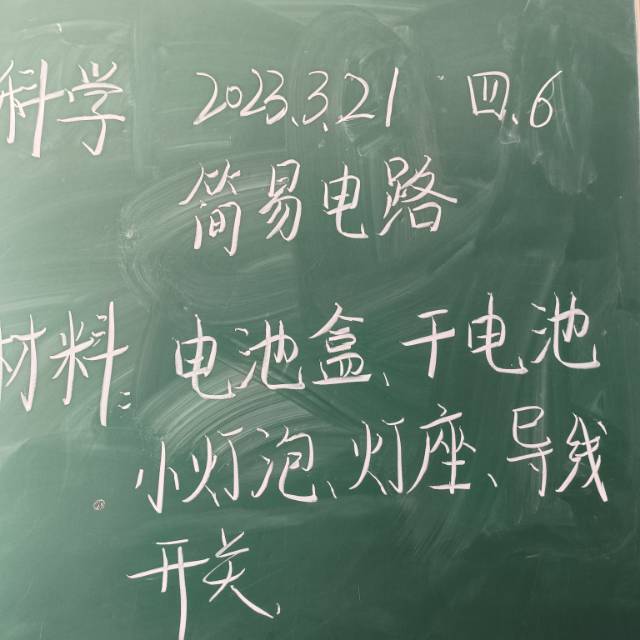 科学 2023.3.21 四.6
简易电路
材料: 电池盒、干电池
小灯泡、灯座、导线
开关.